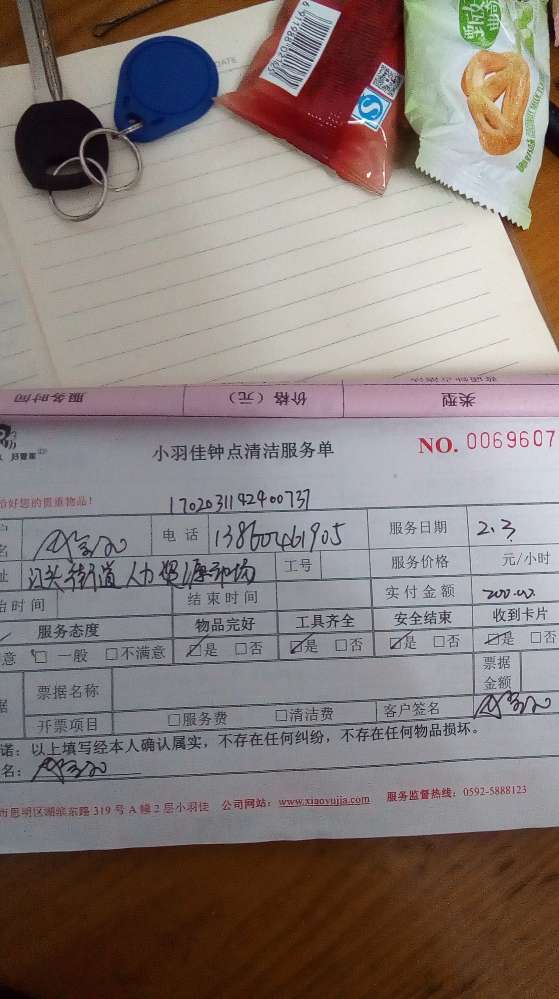 DATE
6 911988 0
QS
服务时间 价格（元） 类型
好管家
小羽佳钟点清洁服务单 NO. 0069607
您的贵重物品！ 1702031142400737
电 话 13860461905 服务日期 2.3
江头街道人力资源市场 工号 服务价格 元/小时
时间 结束时间 实付金额 200.00
服务态度 物品完好 工具齐全 安全结束 收到卡片
意 □一般 □不满意 □是 □否 □是 □否 □是 □否 □是 □否
票据名称 票据金额
开票项目 □服务费 □清洁费 客户签名
诺：以上填写经本人确认属实，不存在任何纠纷，不存在任何物品损坏。
名：
市思明区湖滨东路 319 号 A 幢 2 层小羽佳 公司网站：www.xiaoyujia.com 服务监督热线：0592-5888123